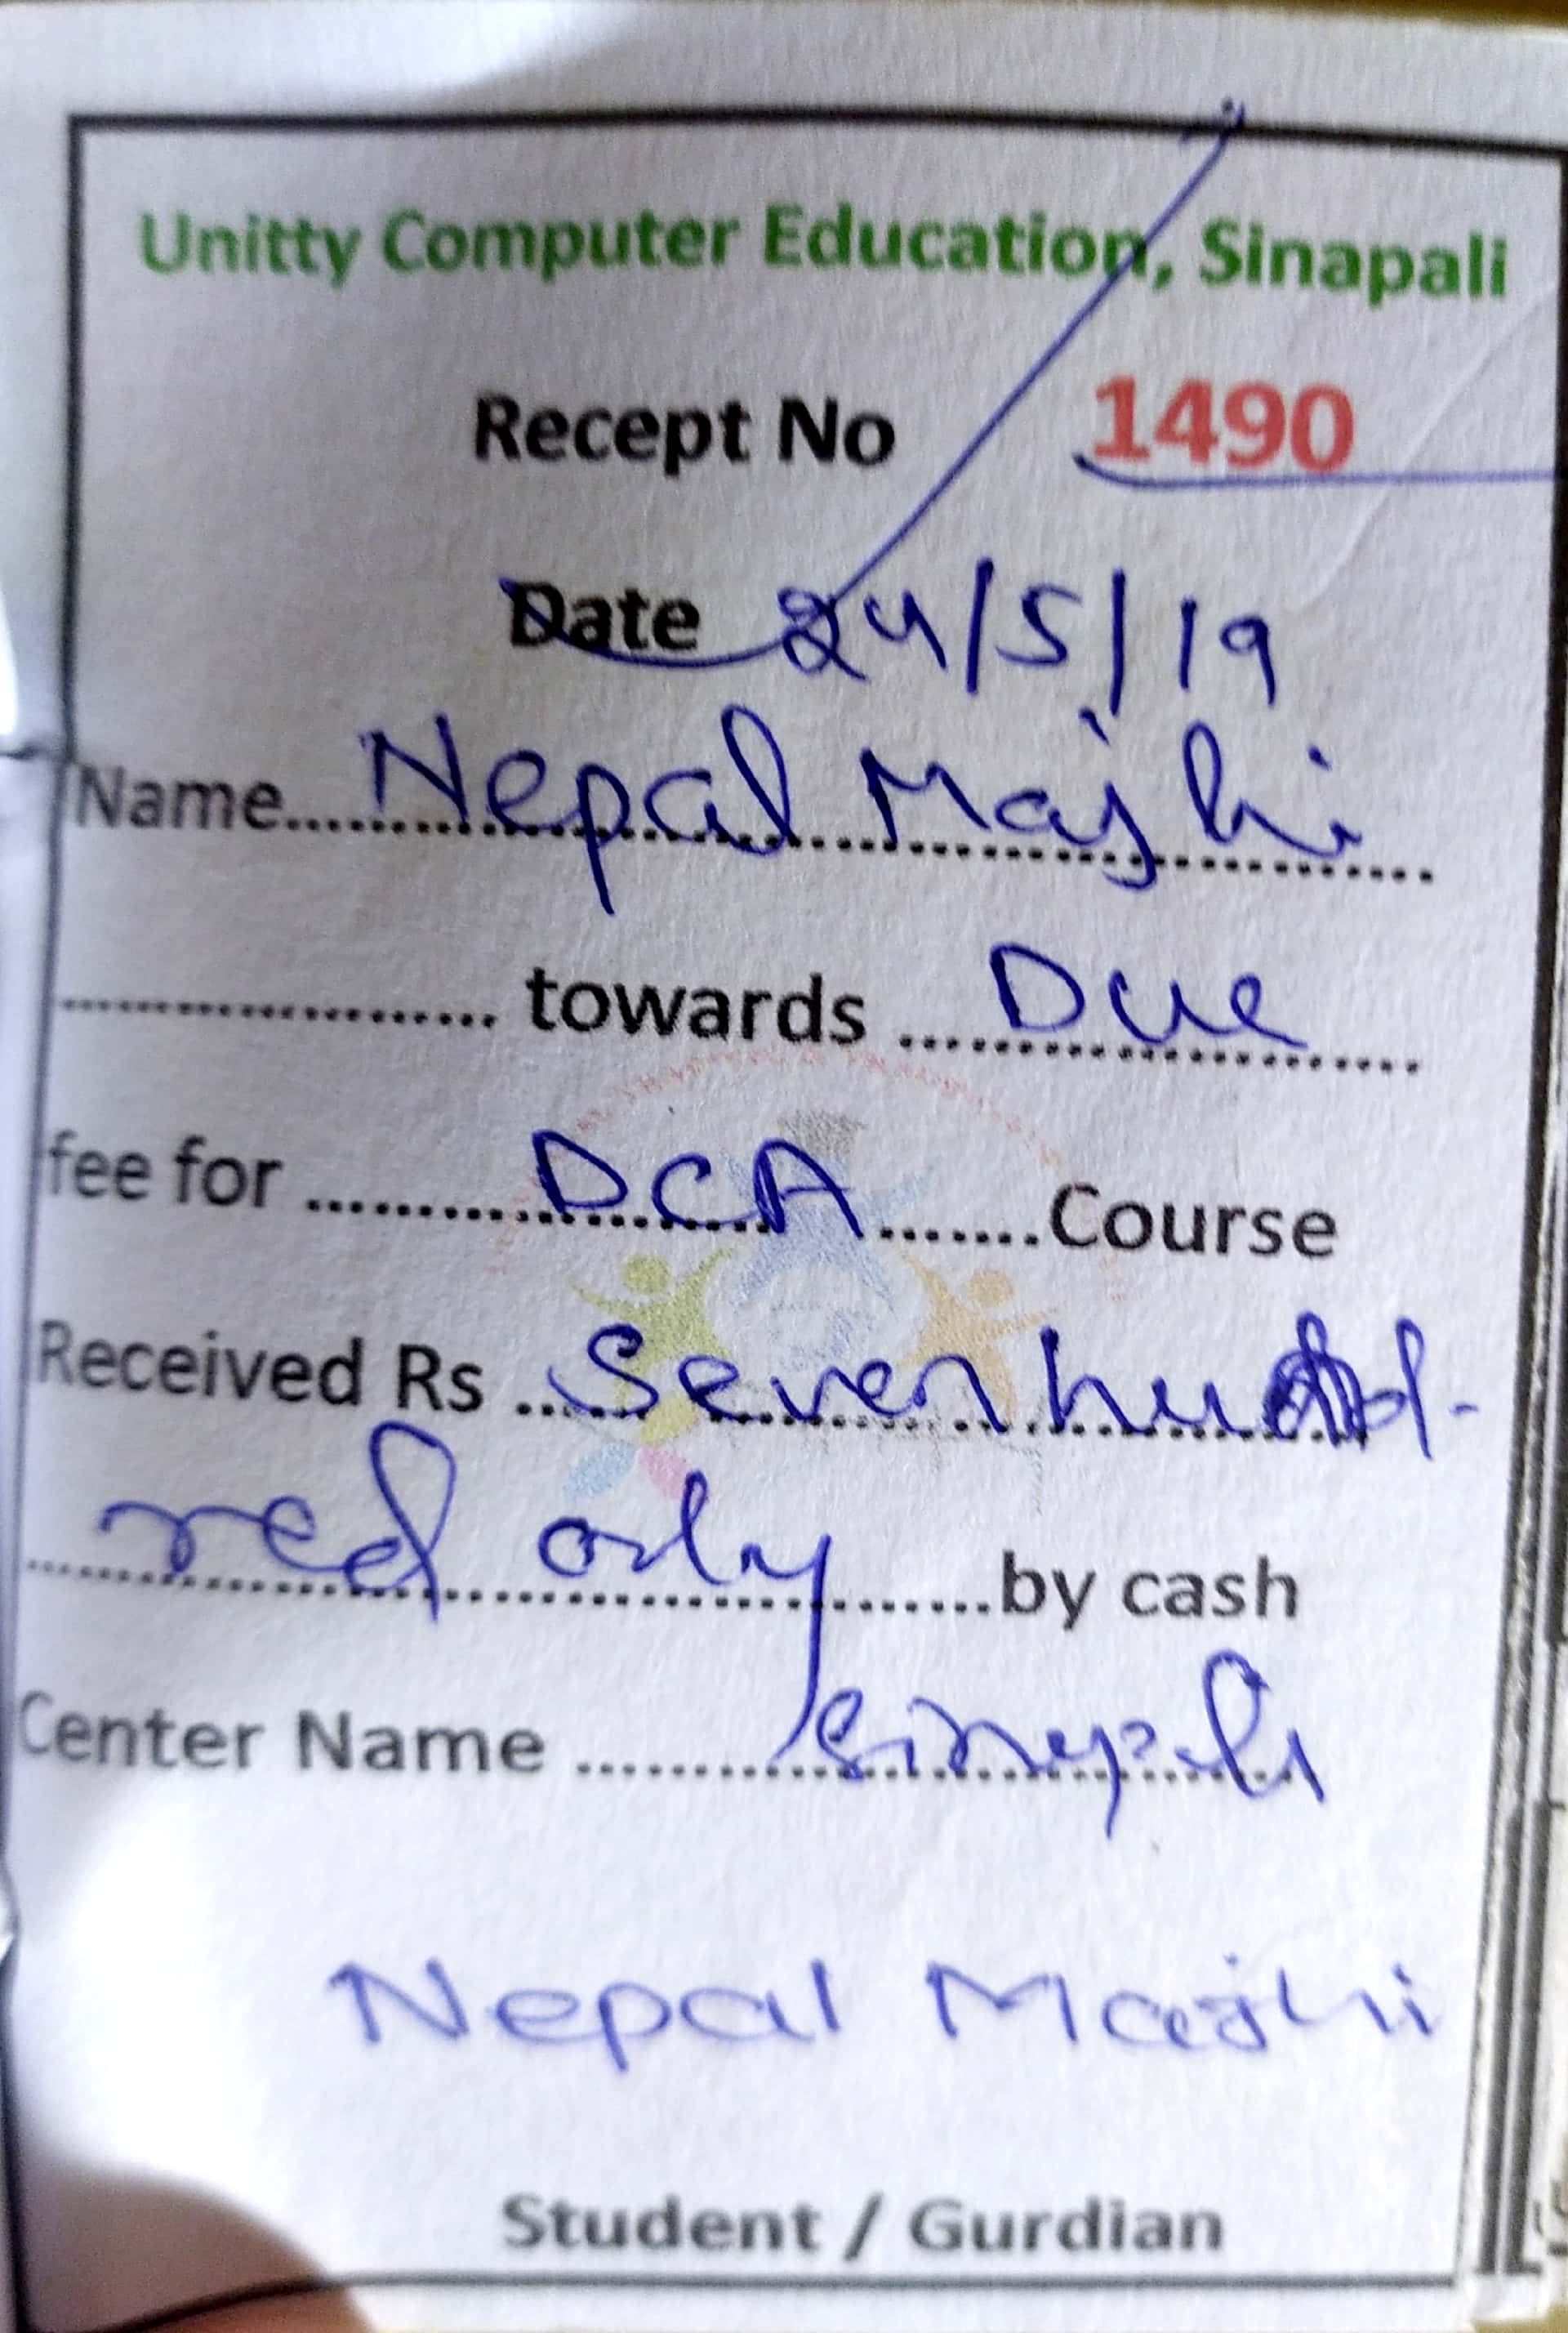 Unitty Computer Education, Sinapali
Recept No 1490
Date 24/5/19
Name Nepal Majhi
towards Due
fee for DCA Course
Received Rs Seven hund-
red only by cash
Center Name Sinapali
Nepal Majhi
Student / Gurdian